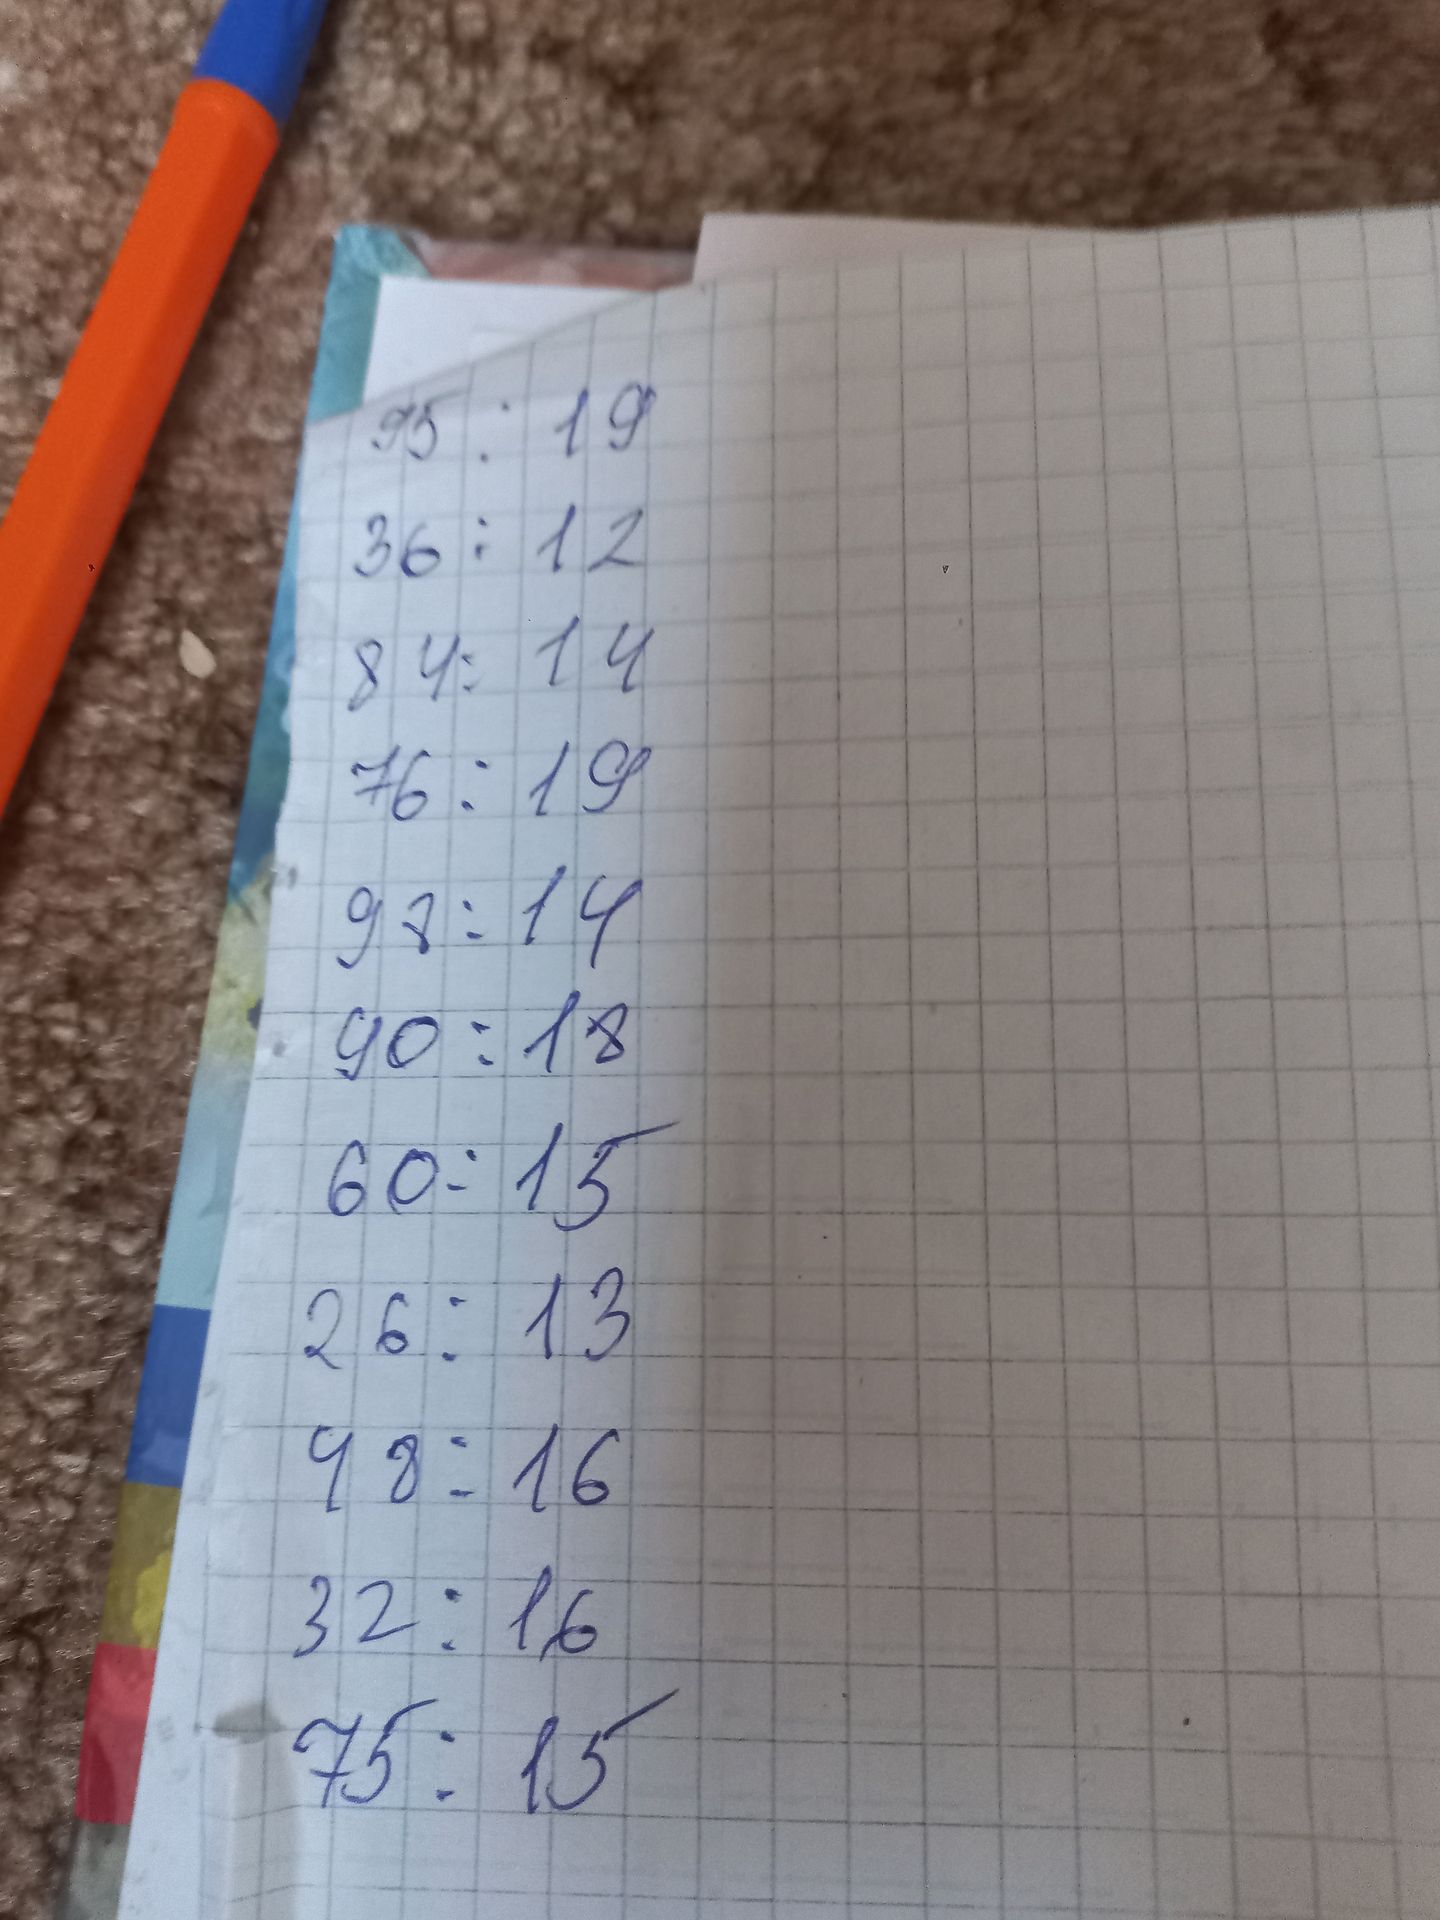 95 : 19
36 : 12
84 : 14
76 : 19
98 : 14
90 : 18
60 : 15
26 : 13
48 : 16
32 : 16
75 : 15